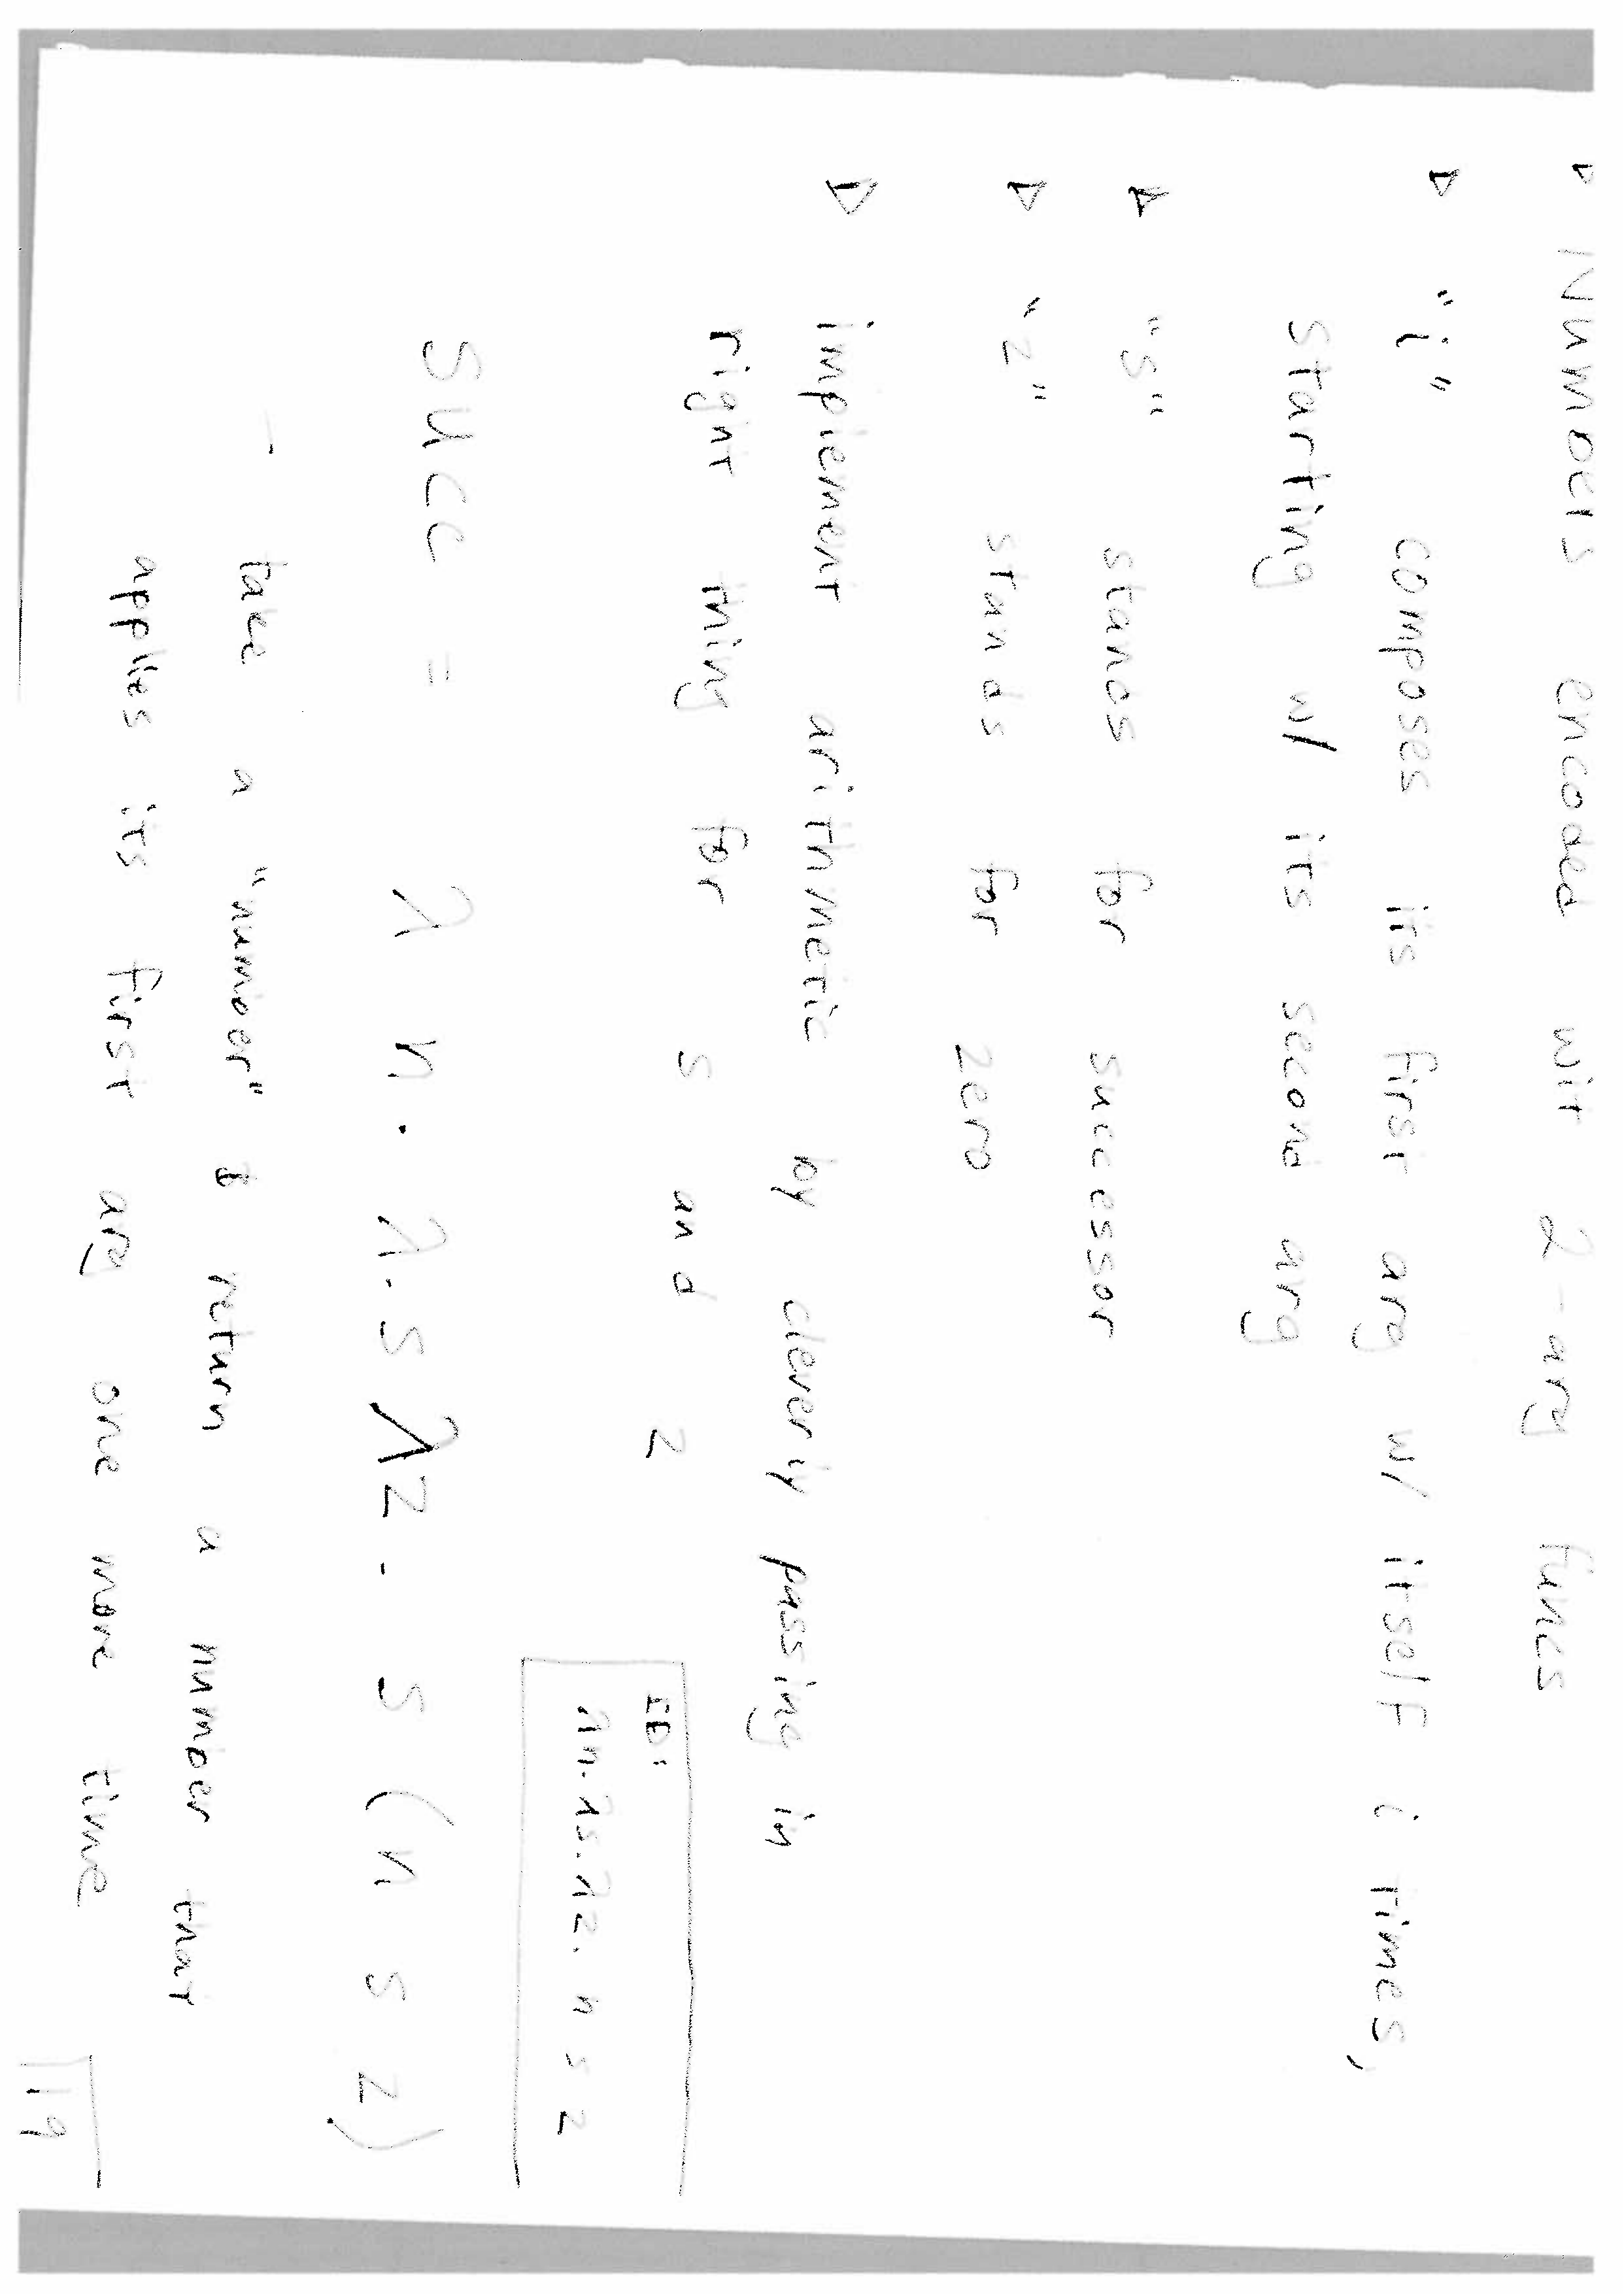 ▷ Numbers encoded wit 2-ary funcs
▷ "i" composes its first arg w/ itself i times,
starting w/ its second arg
▷ "s" stands for successor
▷ "z" stands for zero
▷ implement arithmetic by cleverly passing in
right thing for s and z
ID:
λn.λs.λz. n s z
Succ = λn. λ.s λz. s (n s z)
- take a "number" & return a number that
applies its first arg one more time
119